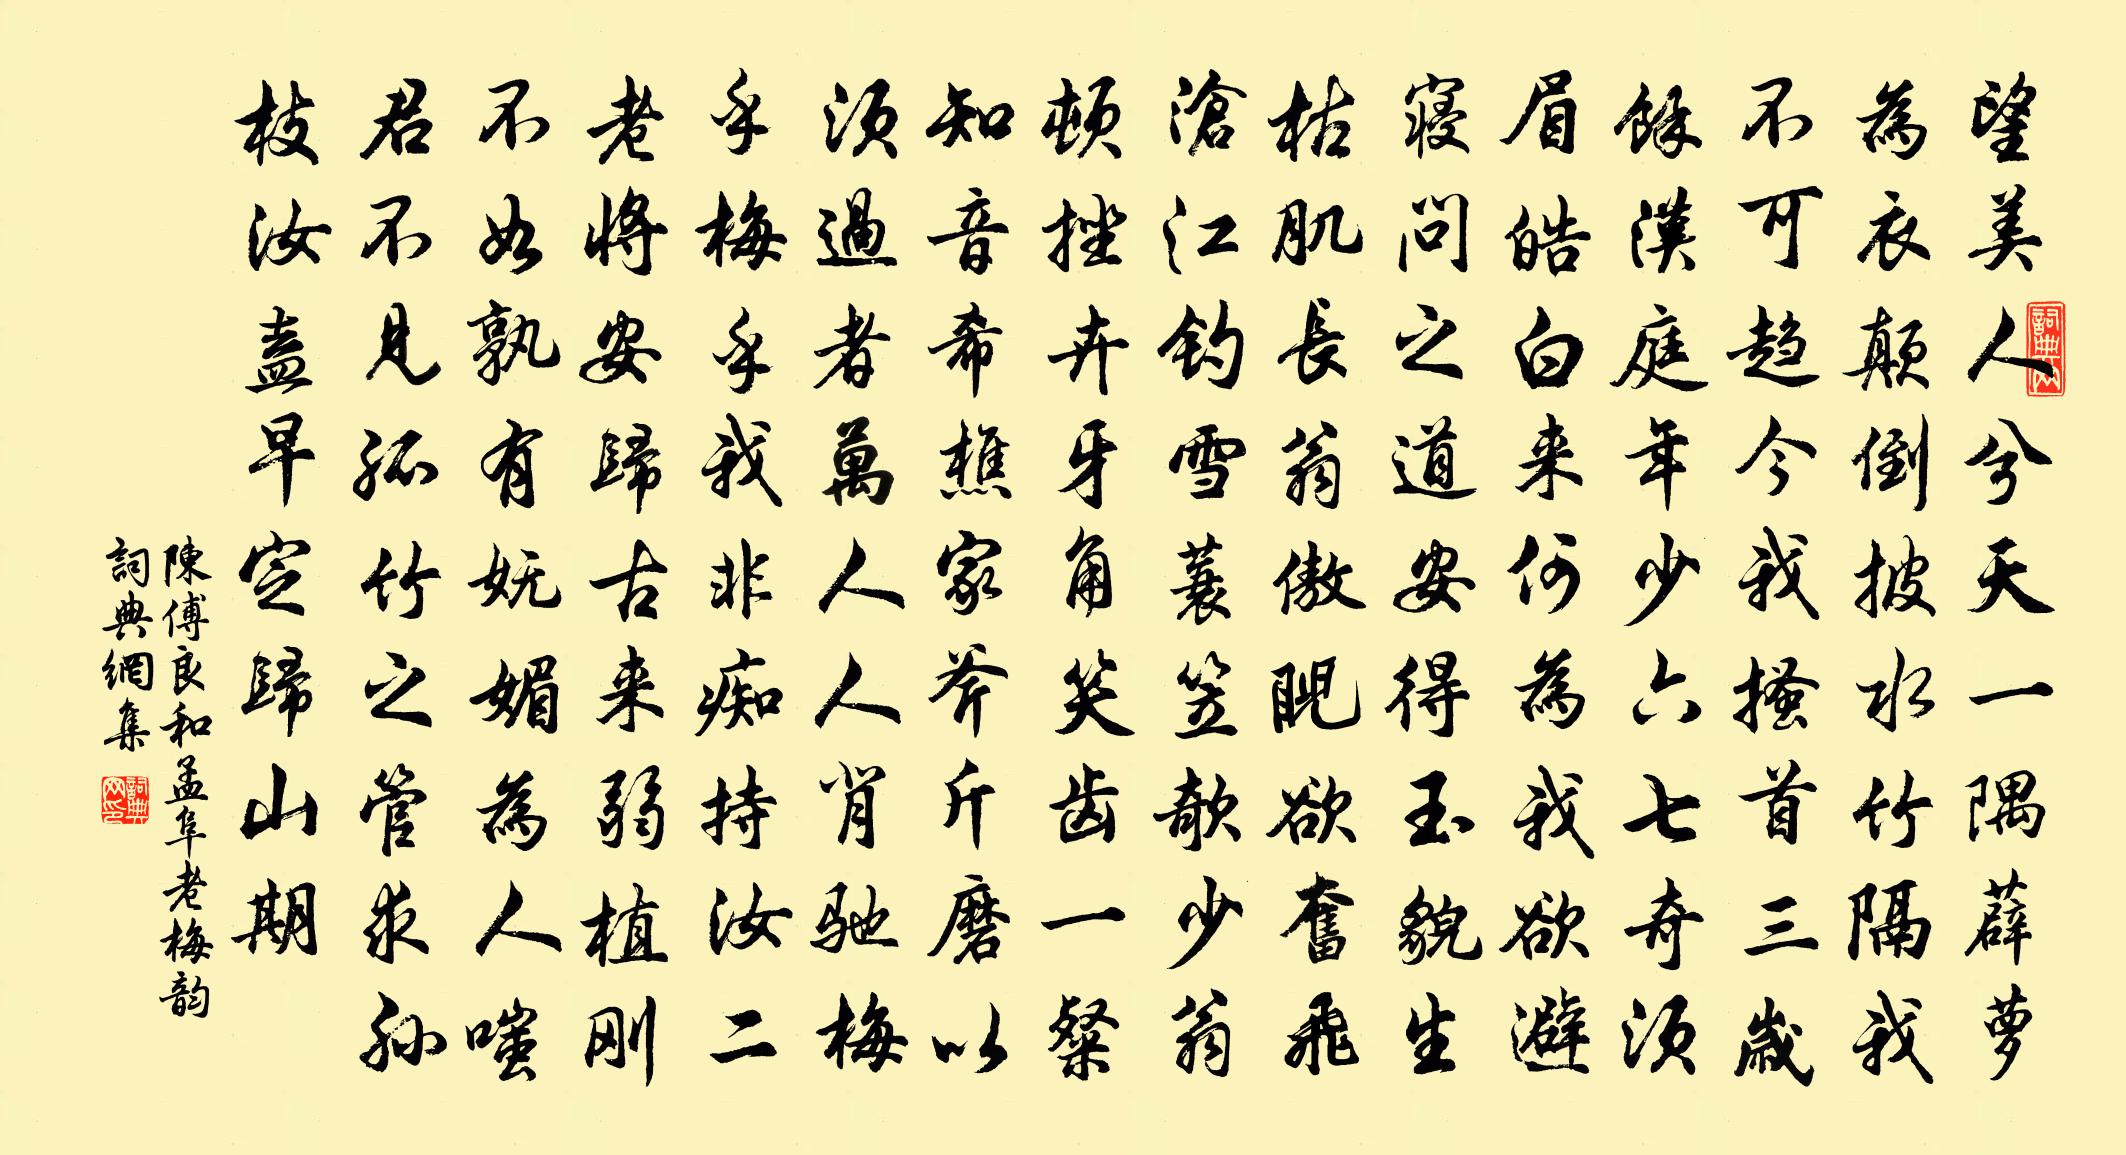 望美人兮天一隅薜萝
為衣顛倒披水竹隔我
不可趋今我搔首三歲
餘漢庭年少六七奇须
眉皓白来何為我欲避
寝問之道安得玉貌生
枯肌長翁傲睨欲奮飛
滄江釣雪蓑笠欹少翁
頓挫卉牙角笑齿一粲
知音希樵家斧斤磨以
须過者萬人人肖馳梅
乎梅乎我非痴持汝二
老將安歸古来弱植刚
不如孰有妩媚為人嗤
君不見孤竹之管求孙
枝汝盍早定歸山期
陳傅良和孟阜老梅韵
詞典網集
詞典网
詞典网印